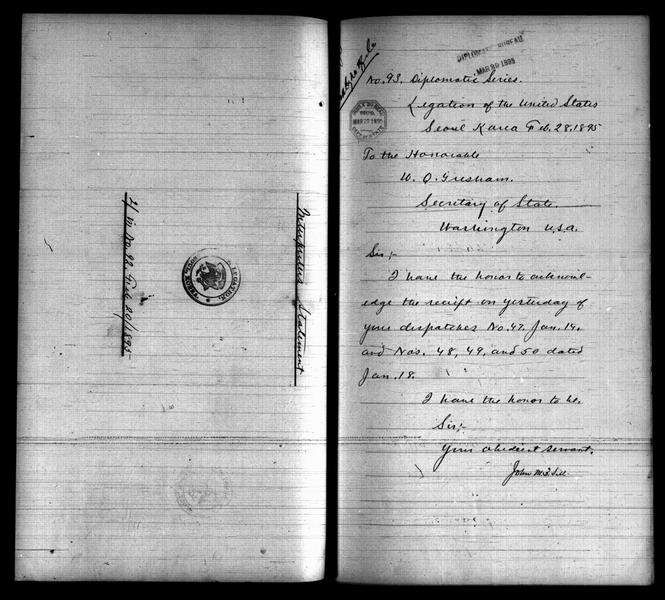 Interpreter's Statement
2/ in No. 92. Feb 20/1895
DIPLOMATIC BUREAU
MAR 29 1895
No. 93. Diplomatic Series.
Legation of the United States
Seoul Korea Feb. 28. 1895
MAR 29 1895
To the Honorable
W. Q. Gresham.
Secretary of State.
Washington U.S.A.
Sir;-
I have the honor to acknowl-
edge the receipt on yesterday of
your despatches No. 47. Jan. 14.
and Nos. 48, 49, and 50 dated
Jan. 18.
I have the honor to be.
Sir;-
Your obedient servant.
John M. B. Sill